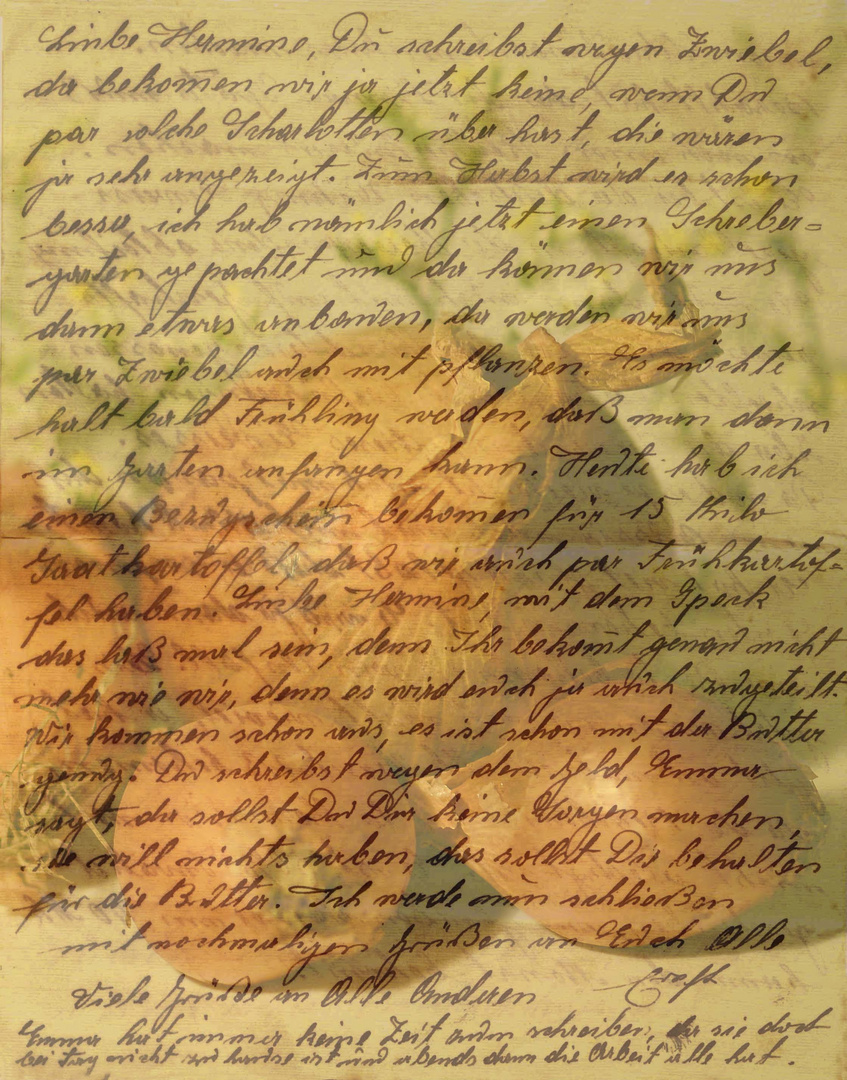 Liebe Hermine, Du schreibst wegen Zwiebel,
da bekom̄en wir ja jetzt keine, wenn Du
par solche Scharlotten über hast, die wären
ja sehr angezeigt. Zum Herbst wird es schon
besser, ich hab nämlich jetzt einen Schreber=
garten gepachtet und da können wir uns
dann etwas anbauen, da werden wir uns
par Zwiebel auch mit pflanzen. Es möchte
halt bald Frühling werden, daß man dann
im Garten anfangen kann. Heute hab ich
einen Bezugschein bekom̄en für 15 Kilo
Saatkartoffel, daß wir auch par Frühkartof=
fel haben. Liebe Hermine, mit dem Speck
das laß mal sein, denn Ihr bekom̄t genau nicht
mehr wie wir, denn es wird euch ja auch zugeteilt.
Wir kommen schon aus, es ist schon mit der Butter
genug. Du schreibst wegen dem Geld, Emma
sagt, da sollst Du Dir keine Sorgen machen,
sie will nichts haben, das sollst Du behalten
für die Butter. Ich werde nun schließen
mit nochmaligen Grüßen an Euch Alle
Viele Grüße an Alle Anderen
Emma hat immer keine Zeit zum schreiben, da sie doch
bei Tag nicht zu hause ist und abends dann die Arbeit alle hat.